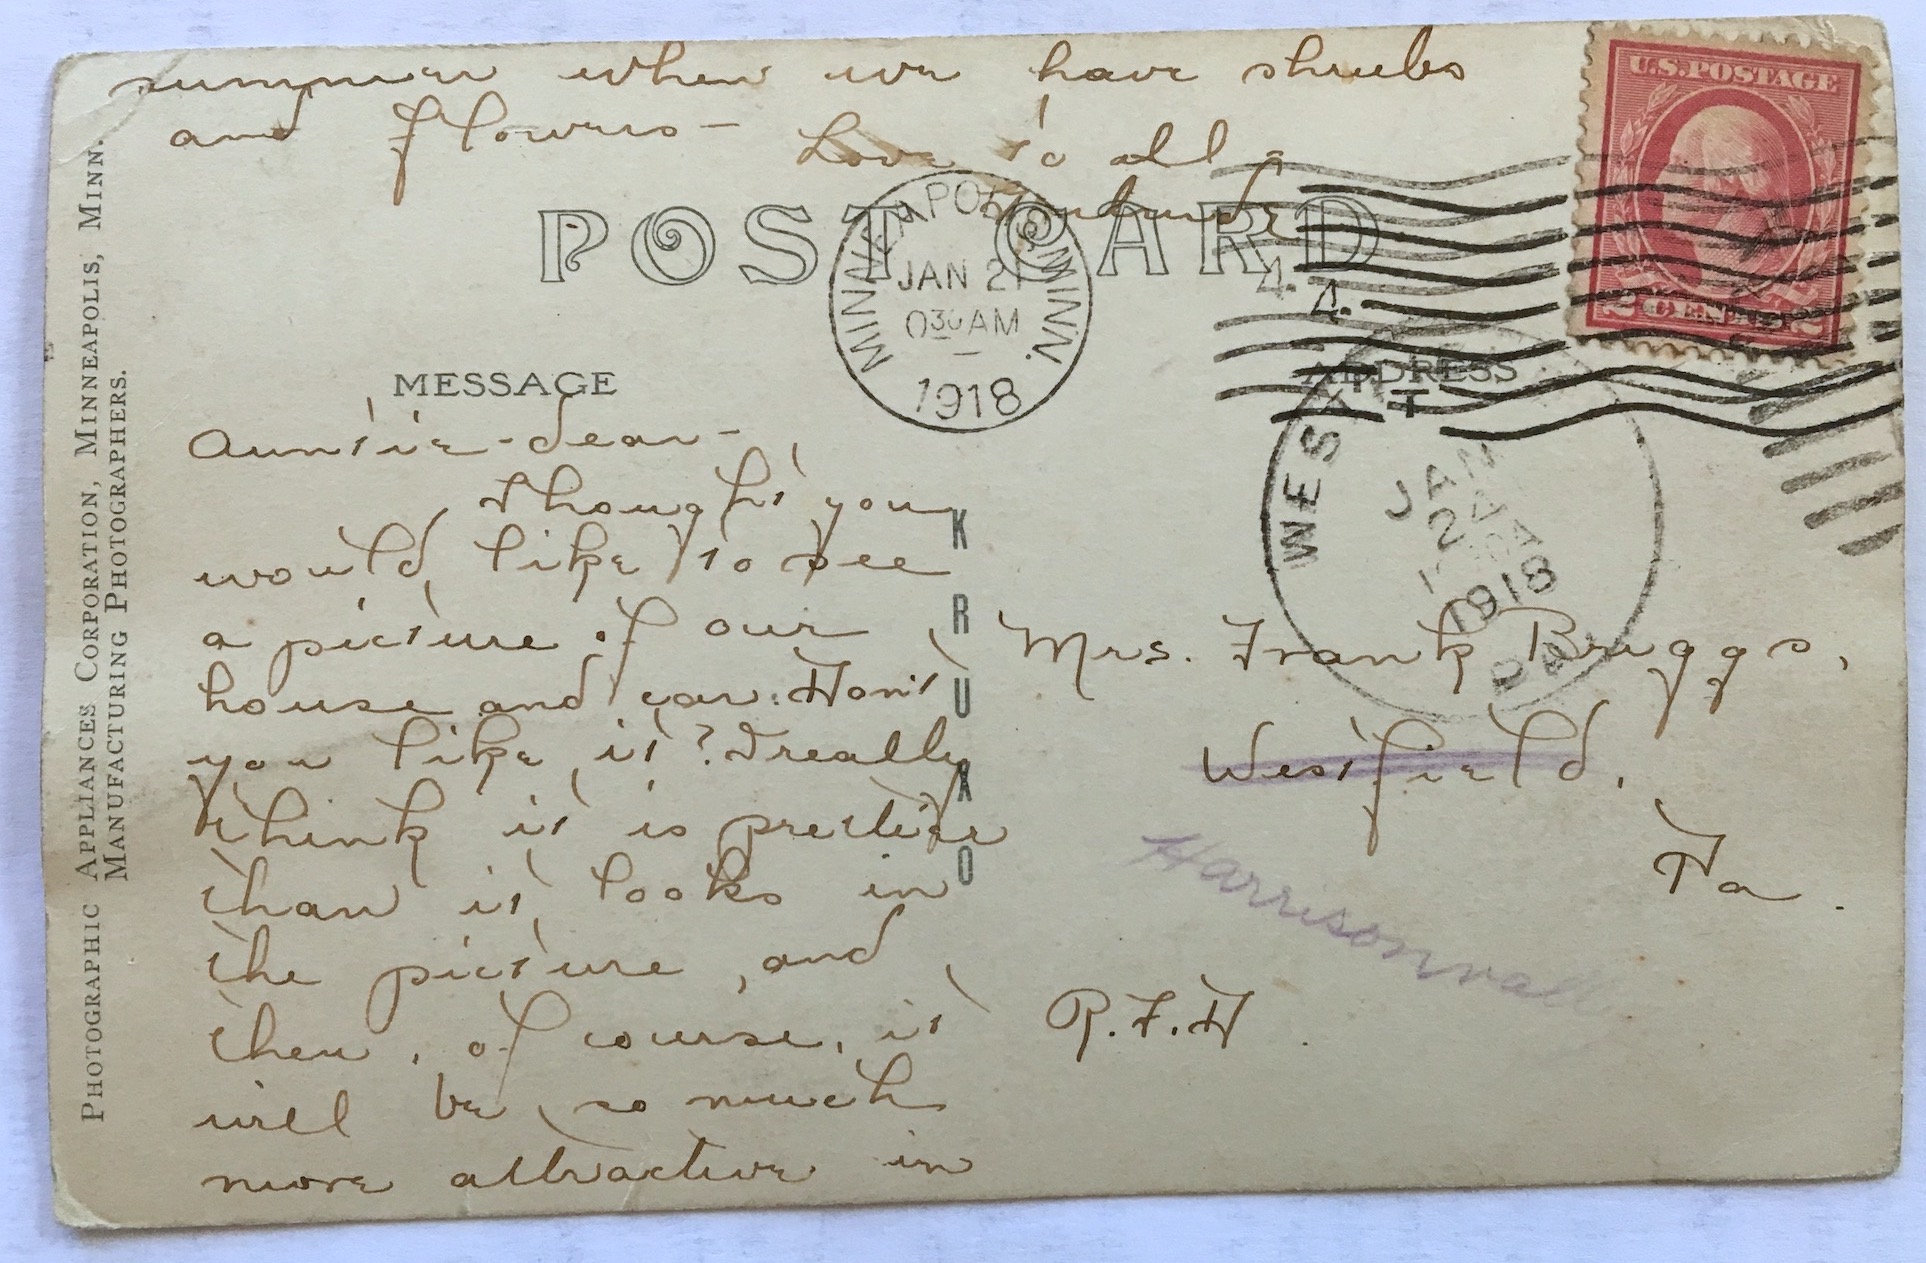 summer when we have shrubs
and flowers – Love to all
POST CARD
U.S.POSTAGE
2 CENTS 2
MINNEAPOLIS, MINN.
JAN 21
AM
1918
4.
4.
MESSAGE
ADDRESS
PHOTOGRAPHIC APPLIANCES CORPORATION, MINNEAPOLIS, MINN.
MANUFACTURING PHOTOGRAPHERS.
Auntie-dear –
Thought you
would like to see
a picture of our
house and car. Don't
you like it? I really
think it is prettier
than it looks in
the picture, and
then, of course, it
will be so much
more attractive in
KRUXO
WEST
JAN
1918
PA.
Mrs. Frank Briggs,
Westfield,
Pa.
Harrison
R.F.D.